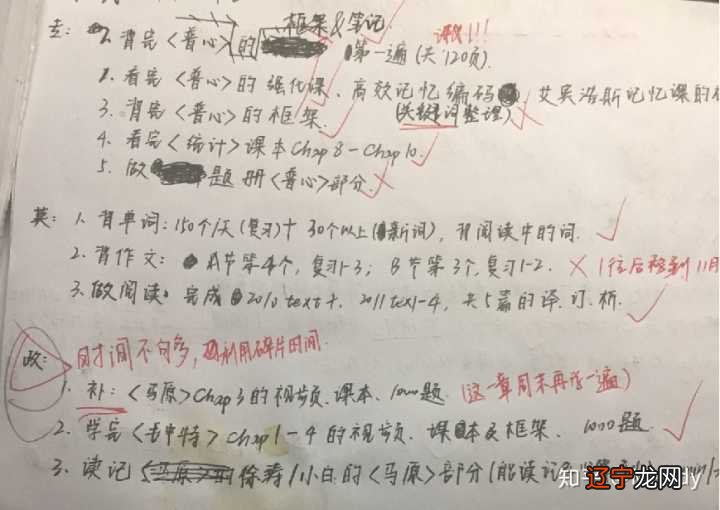 框架&笔记
专: 2. 背完<普心>的 第一遍(共120页).
1. 看完<普心>的强化课、高效记忆编码、艾宾浩斯记忆课的
3. 背完<普心>的框架 (关键词整理)
4. 看完<统计>课本Chap 8-Chap 10.
5. 做 题册<普心>部分.
英: 1. 背单词: 150个/天(复习)+ 30个以上(新词), 背阅读中的词.
2. 背作文: A节第4个, 复习1-3; B节第3个, 复习1-2. 往后移到11月
3. 做阅读: 完成2010 text 4, 2011 text 1-4, 共5篇的译、析.
政: 时间不够多, 利用碎片时间.
1. 补: <马原>Chap 3的视频、课本、1000题. (这一章周末再学一遍)
2. 学完<毛中特>Chap 1-4的视频、课本及框架、1000题.
3. 读记 徐涛/小白的<马原>部分(能读记
知乎
辽宁龙网